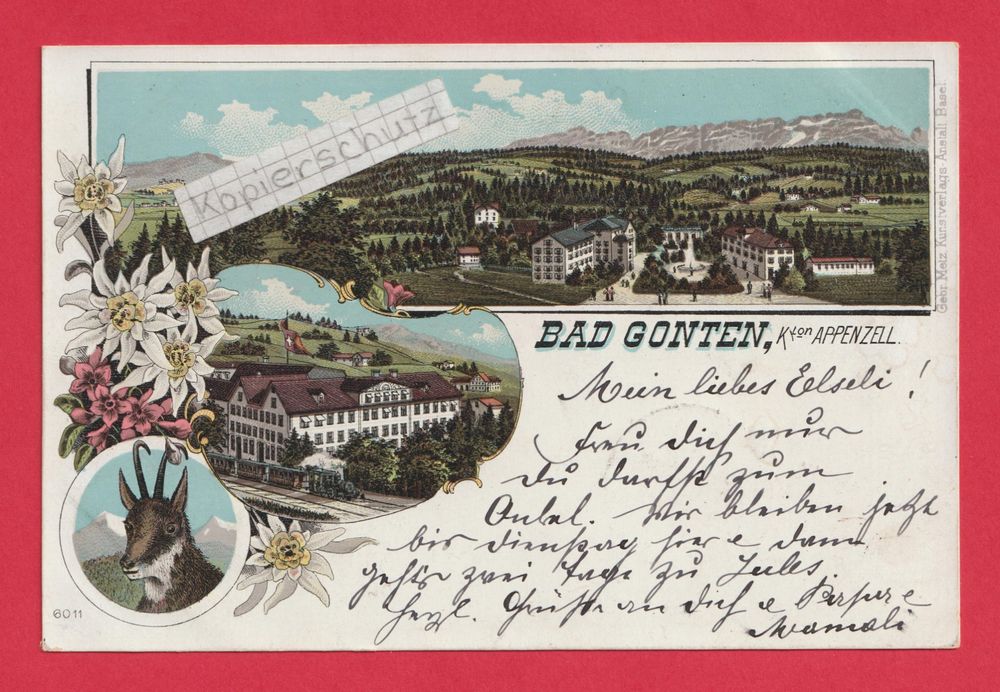 Kopierschutz
Gebr. Metz Kunstverlags-Anstalt Basel
BAD GONTEN, Kton APPENZELL.
Mein liebes Elseli!
Freu dich nur
du darfst zum
Onkel. Wir bleiben jetzt
bis Dienstag hier & dann
geht's zwei Tage zu Jules.
Herzl. Grüße an dich &
Mamali
6011